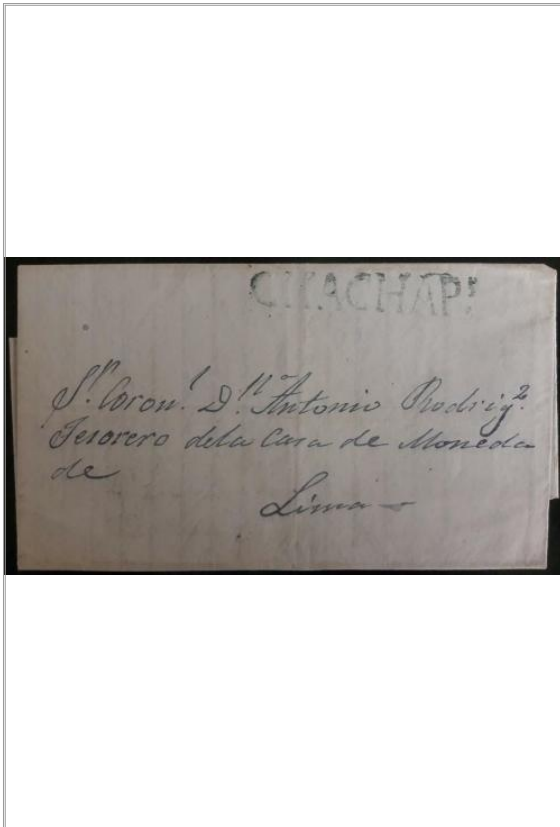 CHACHAPs
Sr. Coronl. Dn. Antonio Rodrigz.
Tesorero dela Casa de Moneda
de
Lima